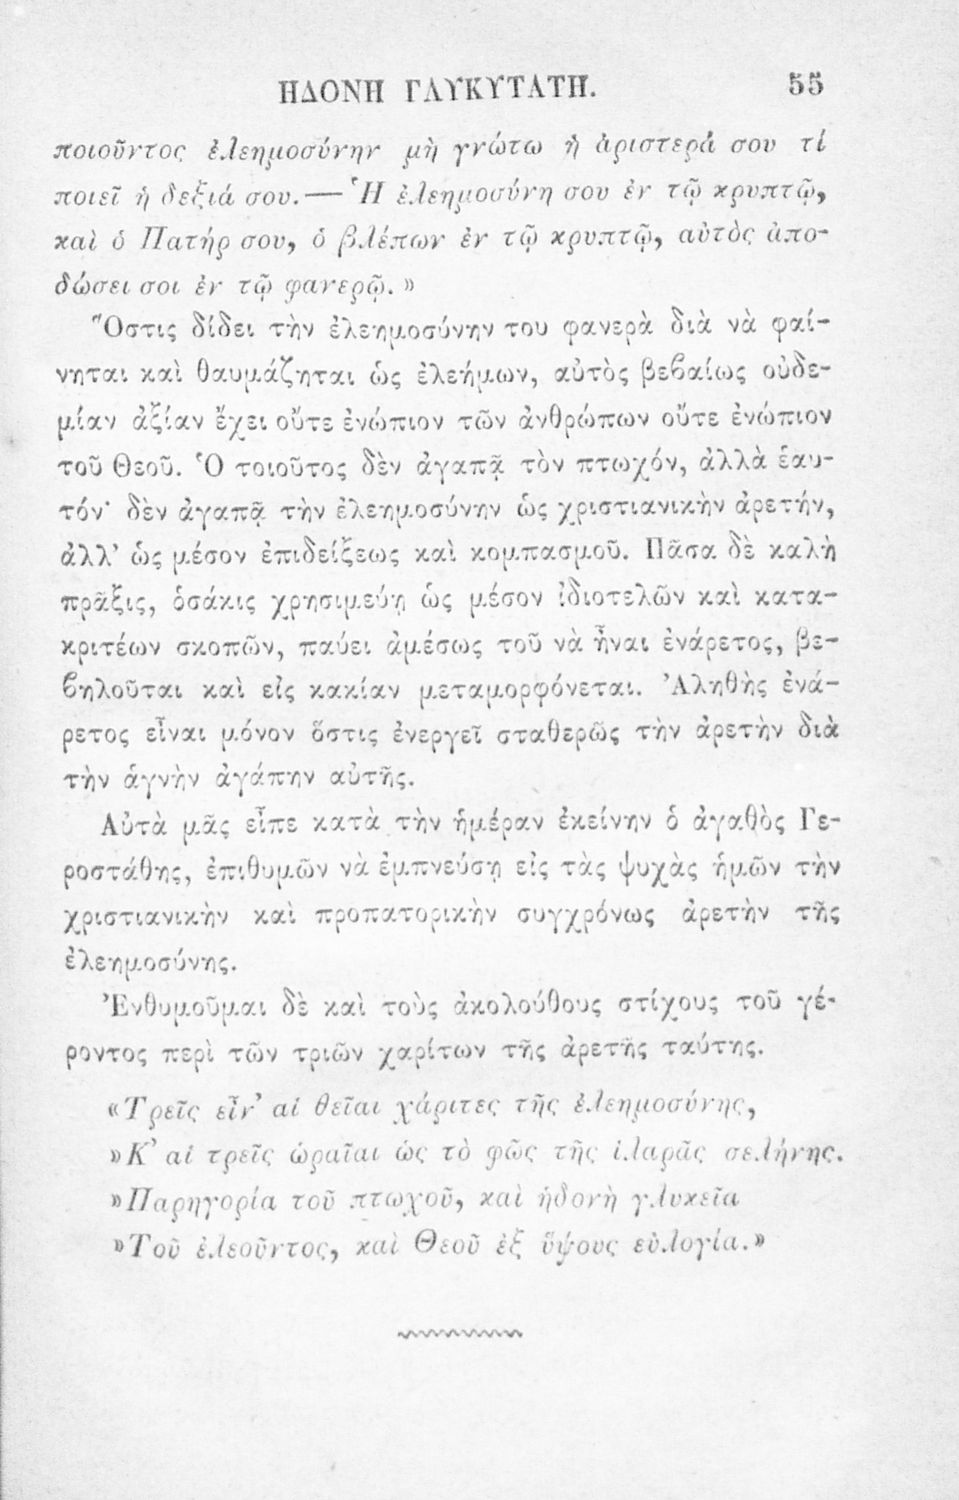 ΗΔΟΝΗ ΓΛΥΚΥΤΑΤΗ. 55
ποιοῦντος ἐλεημοσύνην μὴ γνώτω ἡ ἀριστερά σου τί
ποιεῖ ἡ δεξιά σου.— Ἡ ἐλεημοσύνη σου ἐν τῷ κρυπτῷ,
καὶ ὁ Πατήρ σου, ὁ βλέπων ἐν τῷ κρυπτῷ, αὐτὸς ἀπο-
δώσει σοι ἐν τῷ φανερῷ.»
Ὅστις δίδει τὴν ἐλεημοσύνην του φανερὰ διὰ νὰ φαί-
νηται καὶ θαυμάζηται ὡς ἐλεήμων, αὐτὸς βεβαίως οὐδε-
μίαν ἀξίαν ἔχει οὔτε ἐνώπιον τῶν ἀνθρώπων οὔτε ἐνώπιον
τοῦ Θεοῦ. Ὁ τοιοῦτος δὲν ἀγαπᾷ τὸν πτωχόν, ἀλλὰ ἑαυ-
τόν· δὲν ἀγαπᾷ τὴν ἐλεημοσύνην ὡς χριστιανικὴν ἀρετήν,
ἀλλ’ ὡς μέσον ἐπιδείξεως καὶ κομπασμοῦ. Πᾶσα δὲ καλὴ
πρᾶξις, ὁσάκις χρησιμεύῃ ὡς μέσον ἰδιοτελῶν καὶ κατα-
κριτέων σκοπῶν, παύει ἀμέσως τοῦ νὰ ἦναι ἐνάρετος, βε-
βηλοῦται καὶ εἰς κακίαν μεταμορφόνεται. Ἀληθὴς ἐνά-
ρετος εἶναι μόνον ὅστις ἐνεργεῖ σταθερῶς τὴν ἀρετὴν διὰ
τὴν ἁγνὴν ἀγάπην αὐτῆς.
Αὐτὰ μᾶς εἶπε κατὰ τὴν ἡμέραν ἐκείνην ὁ ἀγαθὸς Γε-
ροστάθης, ἐπιθυμῶν νὰ ἐμπνεύσῃ εἰς τὰς ψυχὰς ἡμῶν τὴν
χριστιανικὴν καὶ προπατορικὴν συγχρόνως ἀρετὴν τῆς
ἐλεημοσύνης.
Ἐνθυμοῦμαι δὲ καὶ τοὺς ἀκολούθους στίχους τοῦ γέ-
ροντος περὶ τῶν τριῶν χαρίτων τῆς ἀρετῆς ταύτης.
«Τρεῖς εἶν’ αἱ θεῖαι χάριτες τῆς ἐλεημοσύνης,
»Κ’ αἱ τρεῖς ὡραῖαι ὡς τὸ φῶς τῆς ἱλαρᾶς σελήνης.
»Παρηγορία τοῦ πτωχοῦ, καὶ ἡδονὴ γλυκεῖα
»Τοῦ ἐλεοῦντος, καὶ Θεοῦ ἐξ ὕψους εὐλογία.»